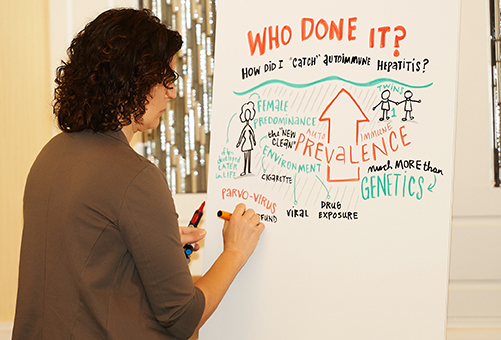 WHO DONE IT?
HOW DID I "CATCH" AUTOIMMUNE HEPATITIS?
FEMALE
PREDOMINANCE
TWINS
1
often
DEVELOPED
LATER
IN LIFE
the "NEW
CLEAN"
AUTO
IMMUNE
PREVALENCE
ENVIRONMENT
CIGARETTE
much MORE than
GENETICS
PARVO-VIRUS
VIRAL
DRUG
EXPOSURE